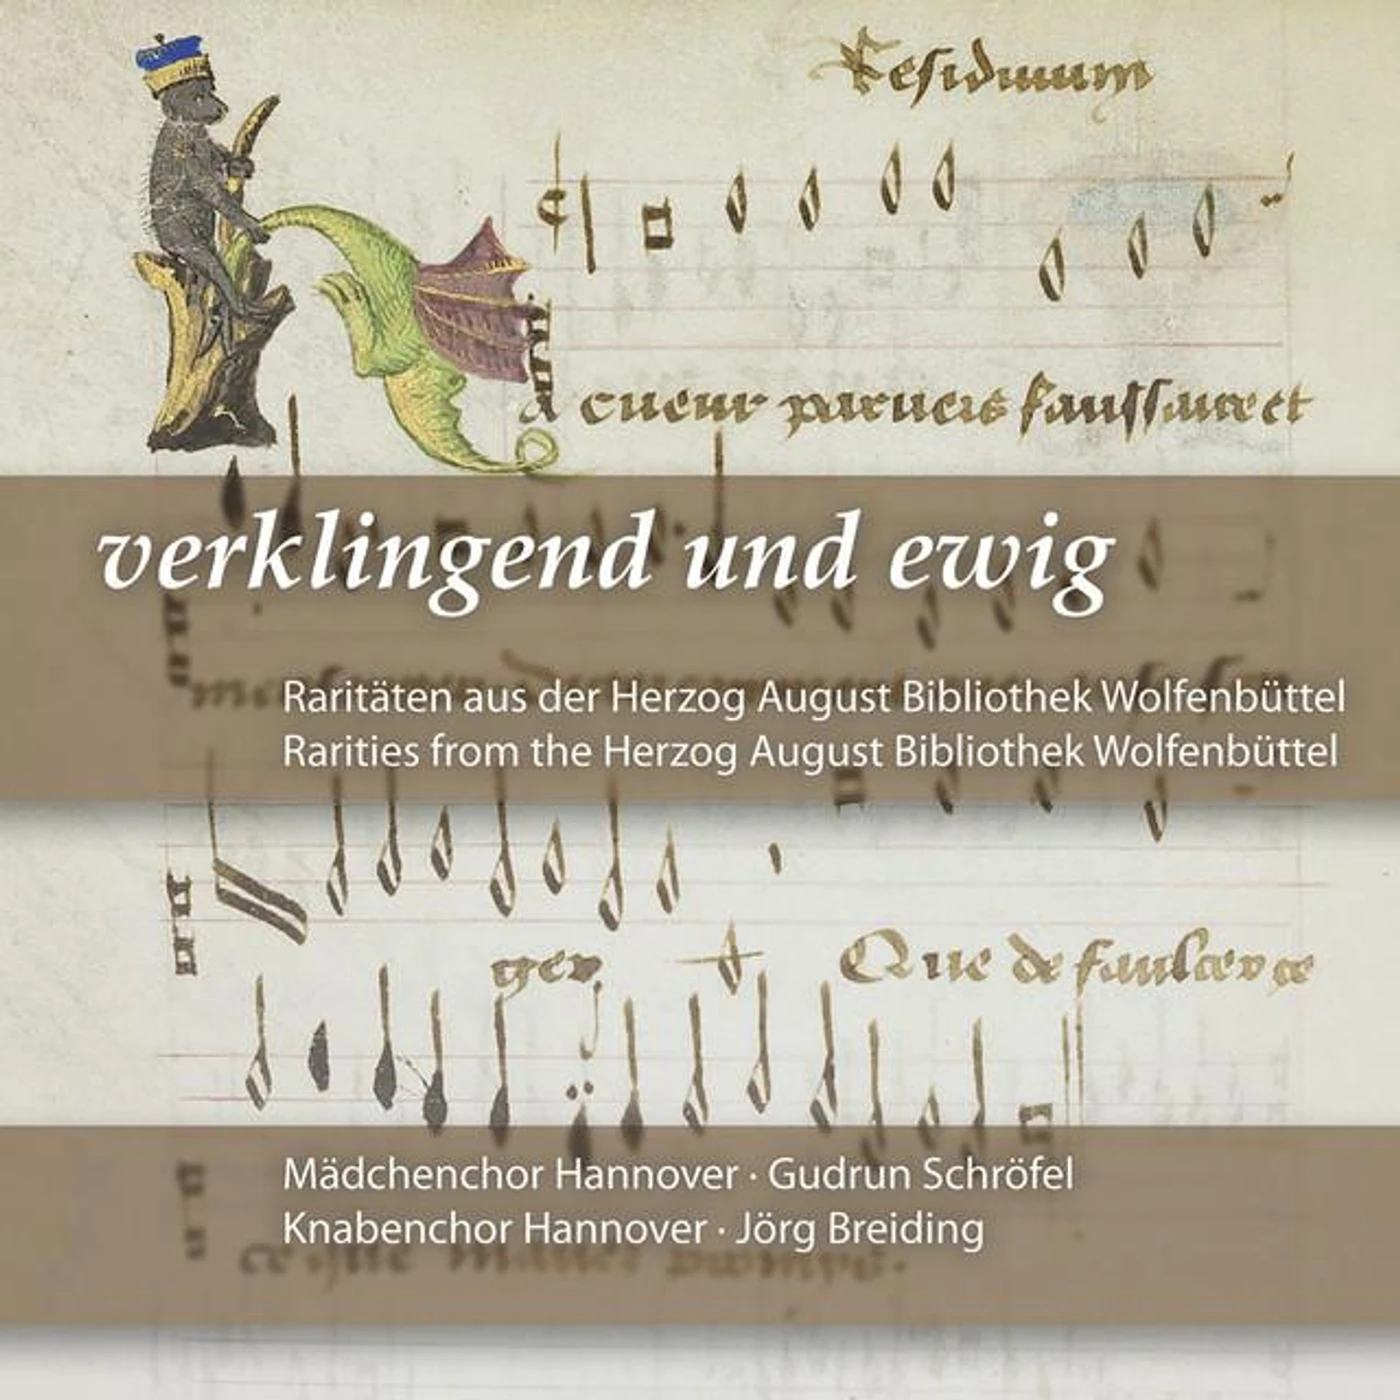 Residuum
cueur
verklingend und ewig
Raritäten aus der Herzog August Bibliothek Wolfenbüttel
Rarities from the Herzog August Bibliothek Wolfenbüttel
ger
Que de
Mädchenchor Hannover · Gudrun Schröfel
Knabenchor Hannover · Jörg Breiding